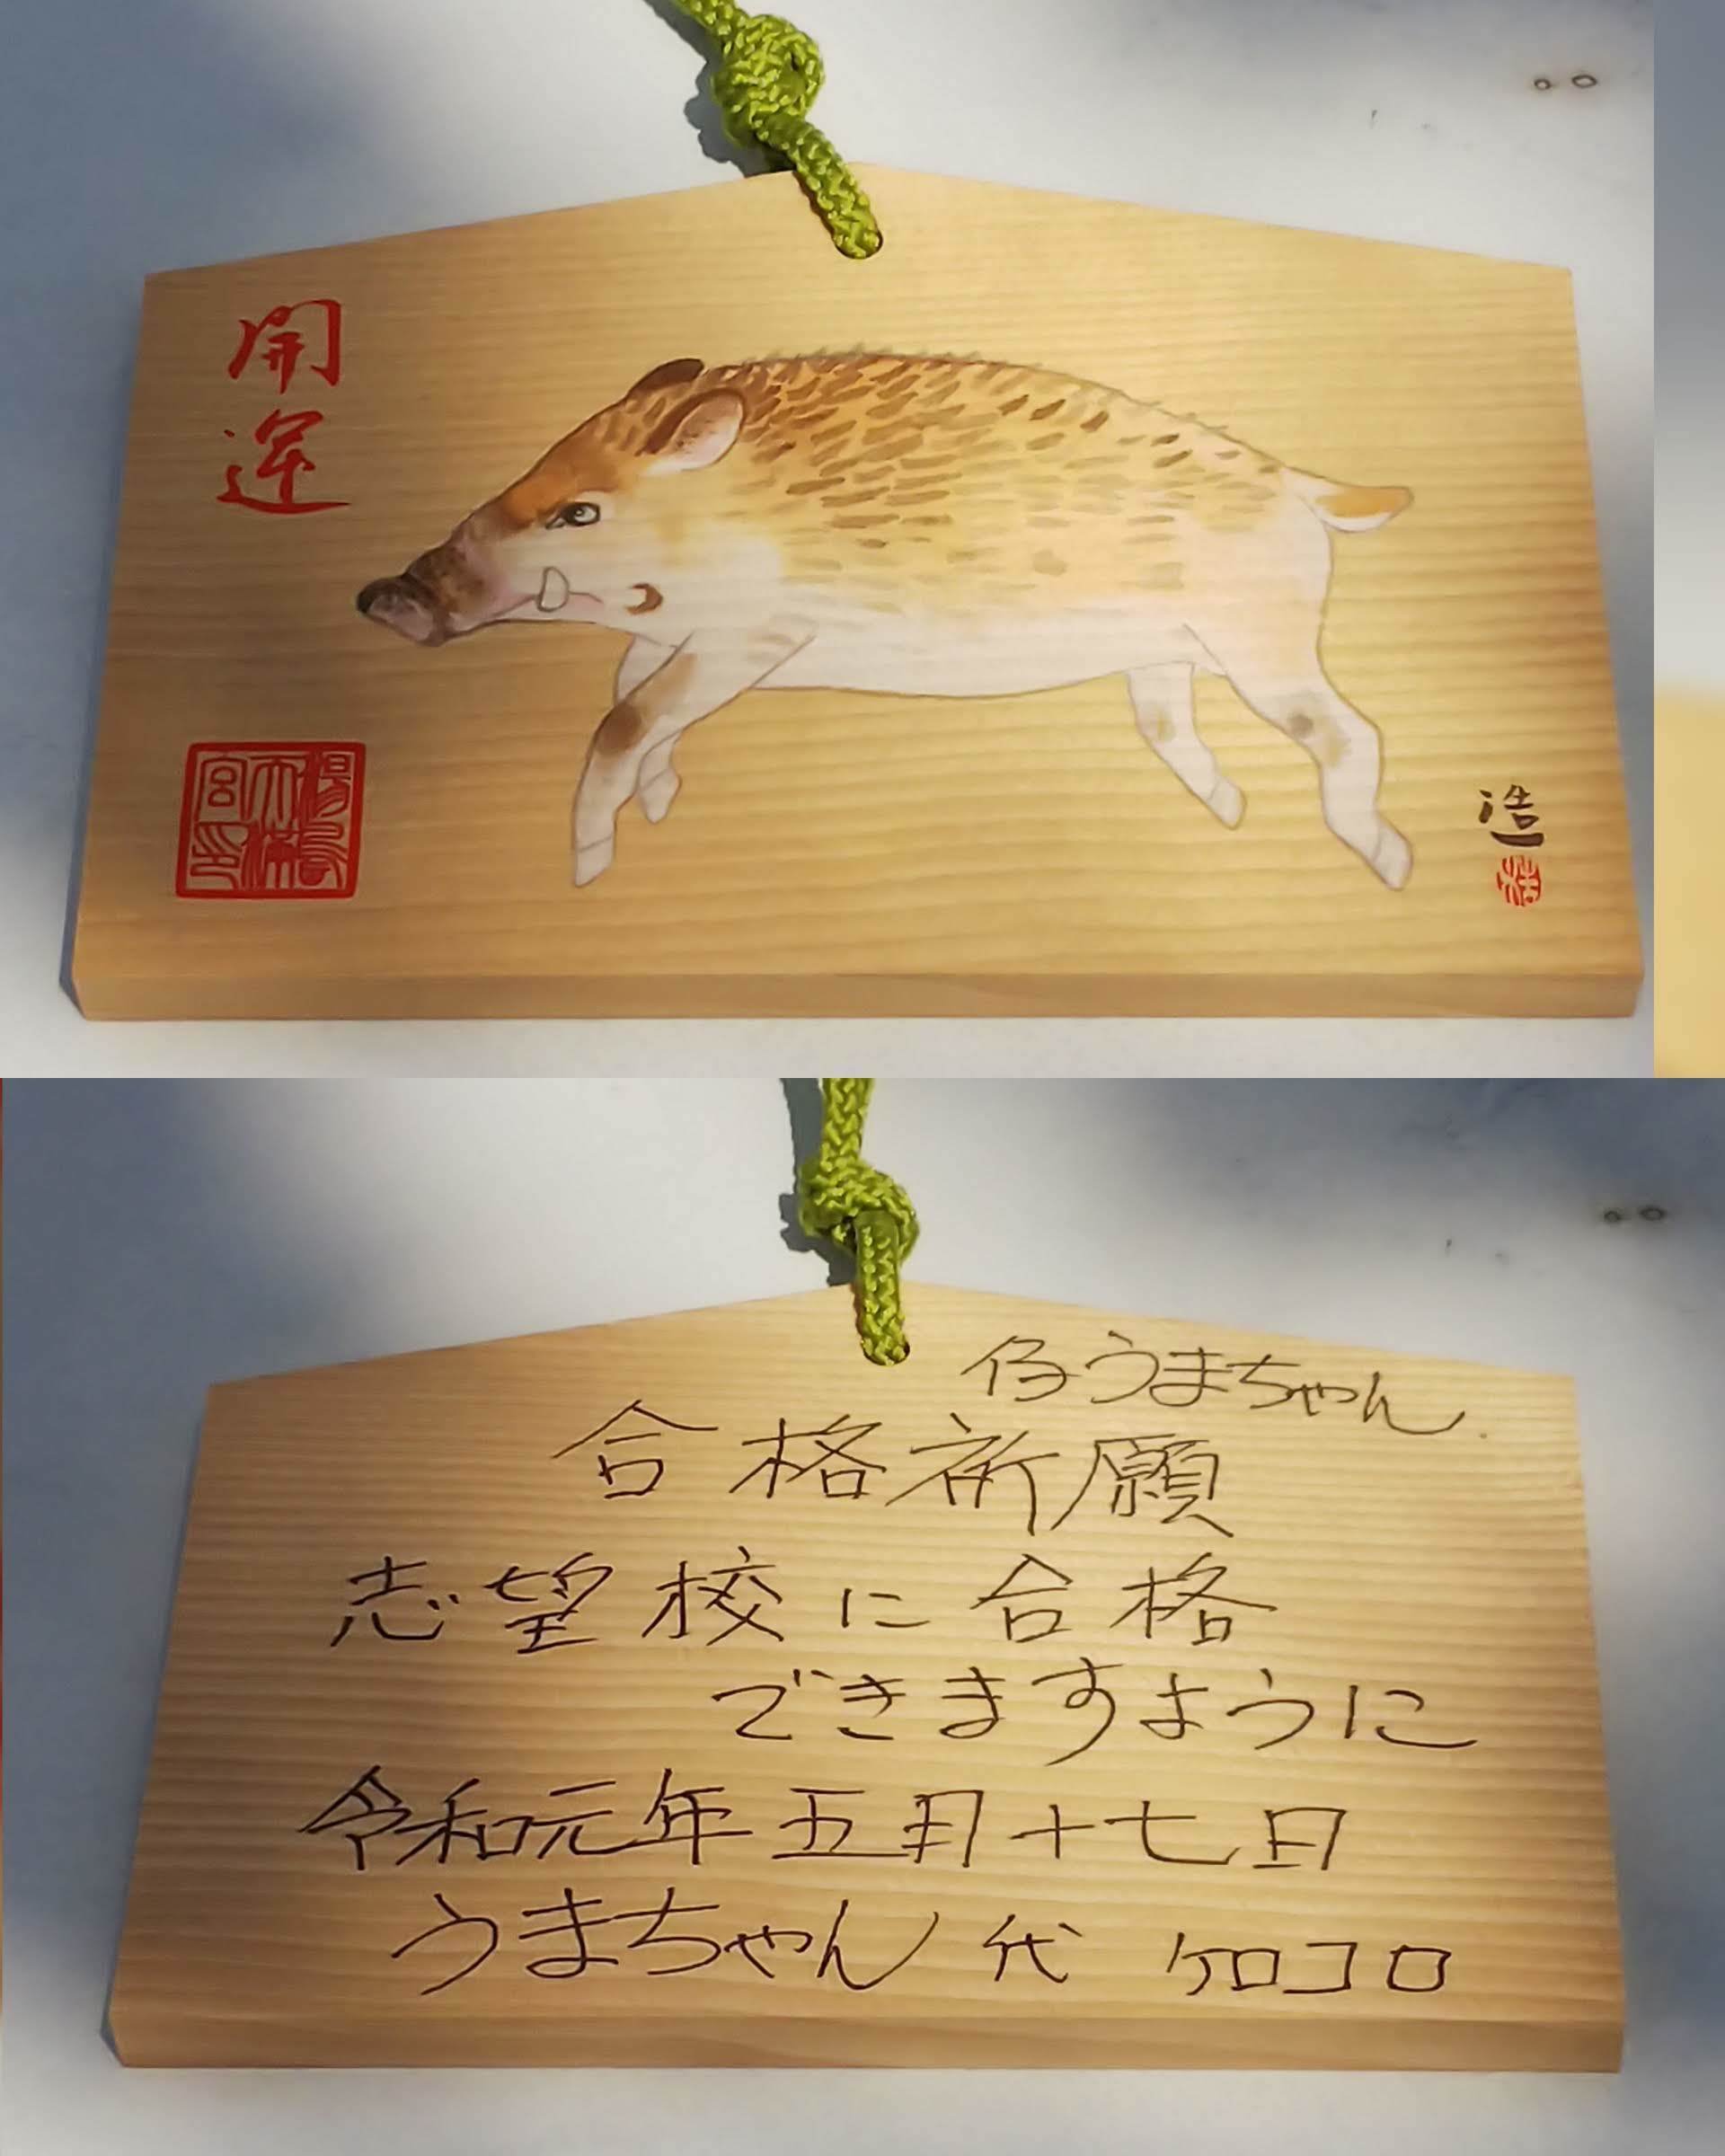 開運
湯島天満宮印
造
仔うまちゃん
合格祈願
志望校に合格
できますように
令和元年五月十七日
うまちゃん 代 ケロコロ